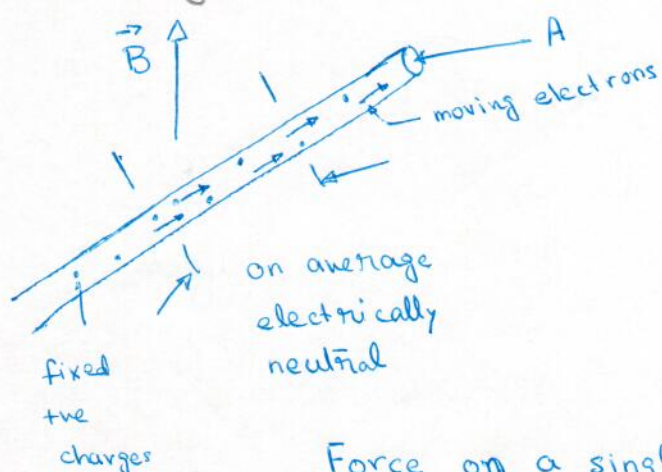 B
A
moving electrons
on average
electrically
neutral
fixed
+ve
charges
Force on a singl